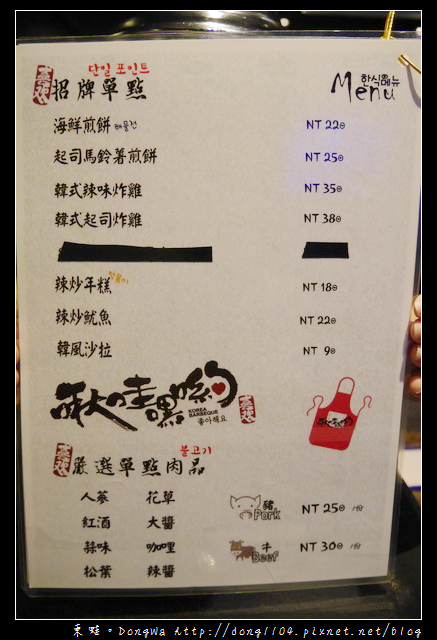 단일 포인트
招牌單點
한식메뉴
Menu
海鮮煎餅 해물전 NT 220
起司馬鈴薯煎餅 NT 250
韓式辣味炸雞 NT 350
韓式起司炸雞 NT 380
辣炒年糕 떡볶이 NT 180
辣炒魷魚 NT 220
韓風沙拉 NT 90
啾哇嘿喲
KOREA
BARBEQUE
좋아해요
불고기
嚴選單點肉品
人蔘 花草
紅酒 大醬
蒜味 咖哩
松葉 辣醬
豬 Pork NT 250 /份
牛 Beef NT 300 /份
東蛙。DongWa http://dong1104.pixnet.net/blog